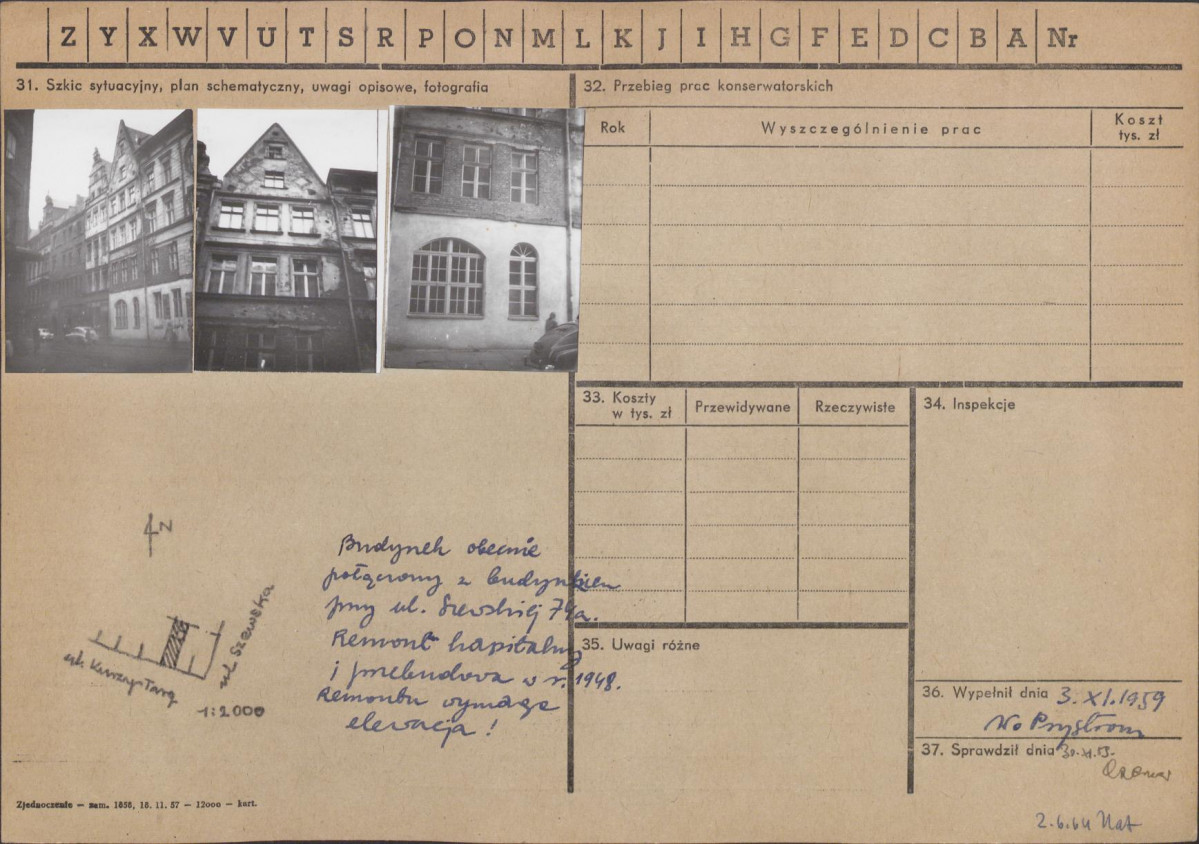 Z Y X W V U T S R P O N M L K J I H G F E D C B A Nr
31. Szkic sytuacyjny, plan schematyczny, uwagi opisowe, fotografia
4 N
ul. Szewska
ul. Kurzy Targ
1:2000
Budynek obecnie
połączony z budynkiem
przy ul. Szewskiej 74a.
Remont kapitalny
i przebudowa w r. 1948.
Remontu wymaga
elewacja!
Zjednoczenie — zam. 1858, 18. 11. 57 — 12000 — kart.
32. Przebieg prac konserwatorskich
Rok
Wyszczególnienie prac
Koszt
tys. zł
33. Koszty
w tys. zł
Przewidywane
Rzeczywiste
34. Inspekcje
35. Uwagi różne
36. Wypełnił dnia 3. XI. 1959
37. Sprawdził dnia
2.6.64